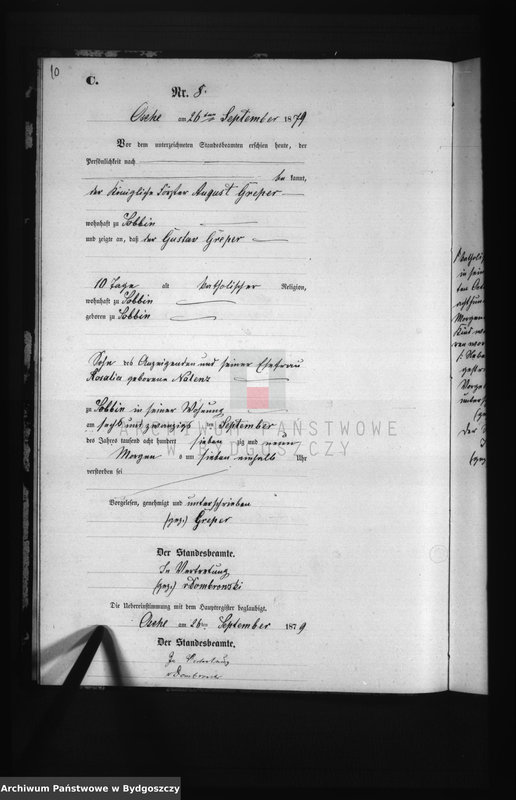 10
C.
Nr. 8.
Osche am 26ten September 1879
Vor dem unterzeichneten Standesbeamten erschien heute, der
Persönlichkeit nach
be kannt,
der Königliche Förster August Greper
wohnhaft zu Sobbin
und zeigte an, daß der Gustav Greper
10 Tage alt katholischer Religion,
wohnhaft zu Sobbin
geboren zu Sobbin
Sohn des Anzeigenden und seiner Ehefrau
Rosalia geborene Nalenz
zu Sobbin in seiner Wohnung
am sechs und zwanzigsten September
des Jahres tausend acht hundert sieben zig und neun
Morgens um sieben einhalb Uhr
verstorben sei
Vorgelesen, genehmigt und unterschrieben
(gez.) Greper
Der Standesbeamte.
In Vertretung
(gez.) v Dombrowski
Die Uebereinstimmung mit dem Hauptregister beglaubigt.
Osche am 26ten September 1879
Der Standesbeamte.
In Vertretung
v Dombrowski
ARCHIWUM PAŃSTWOWE
W BYDGOSZCZY
Archiwum Państwowe w Bydgoszczy